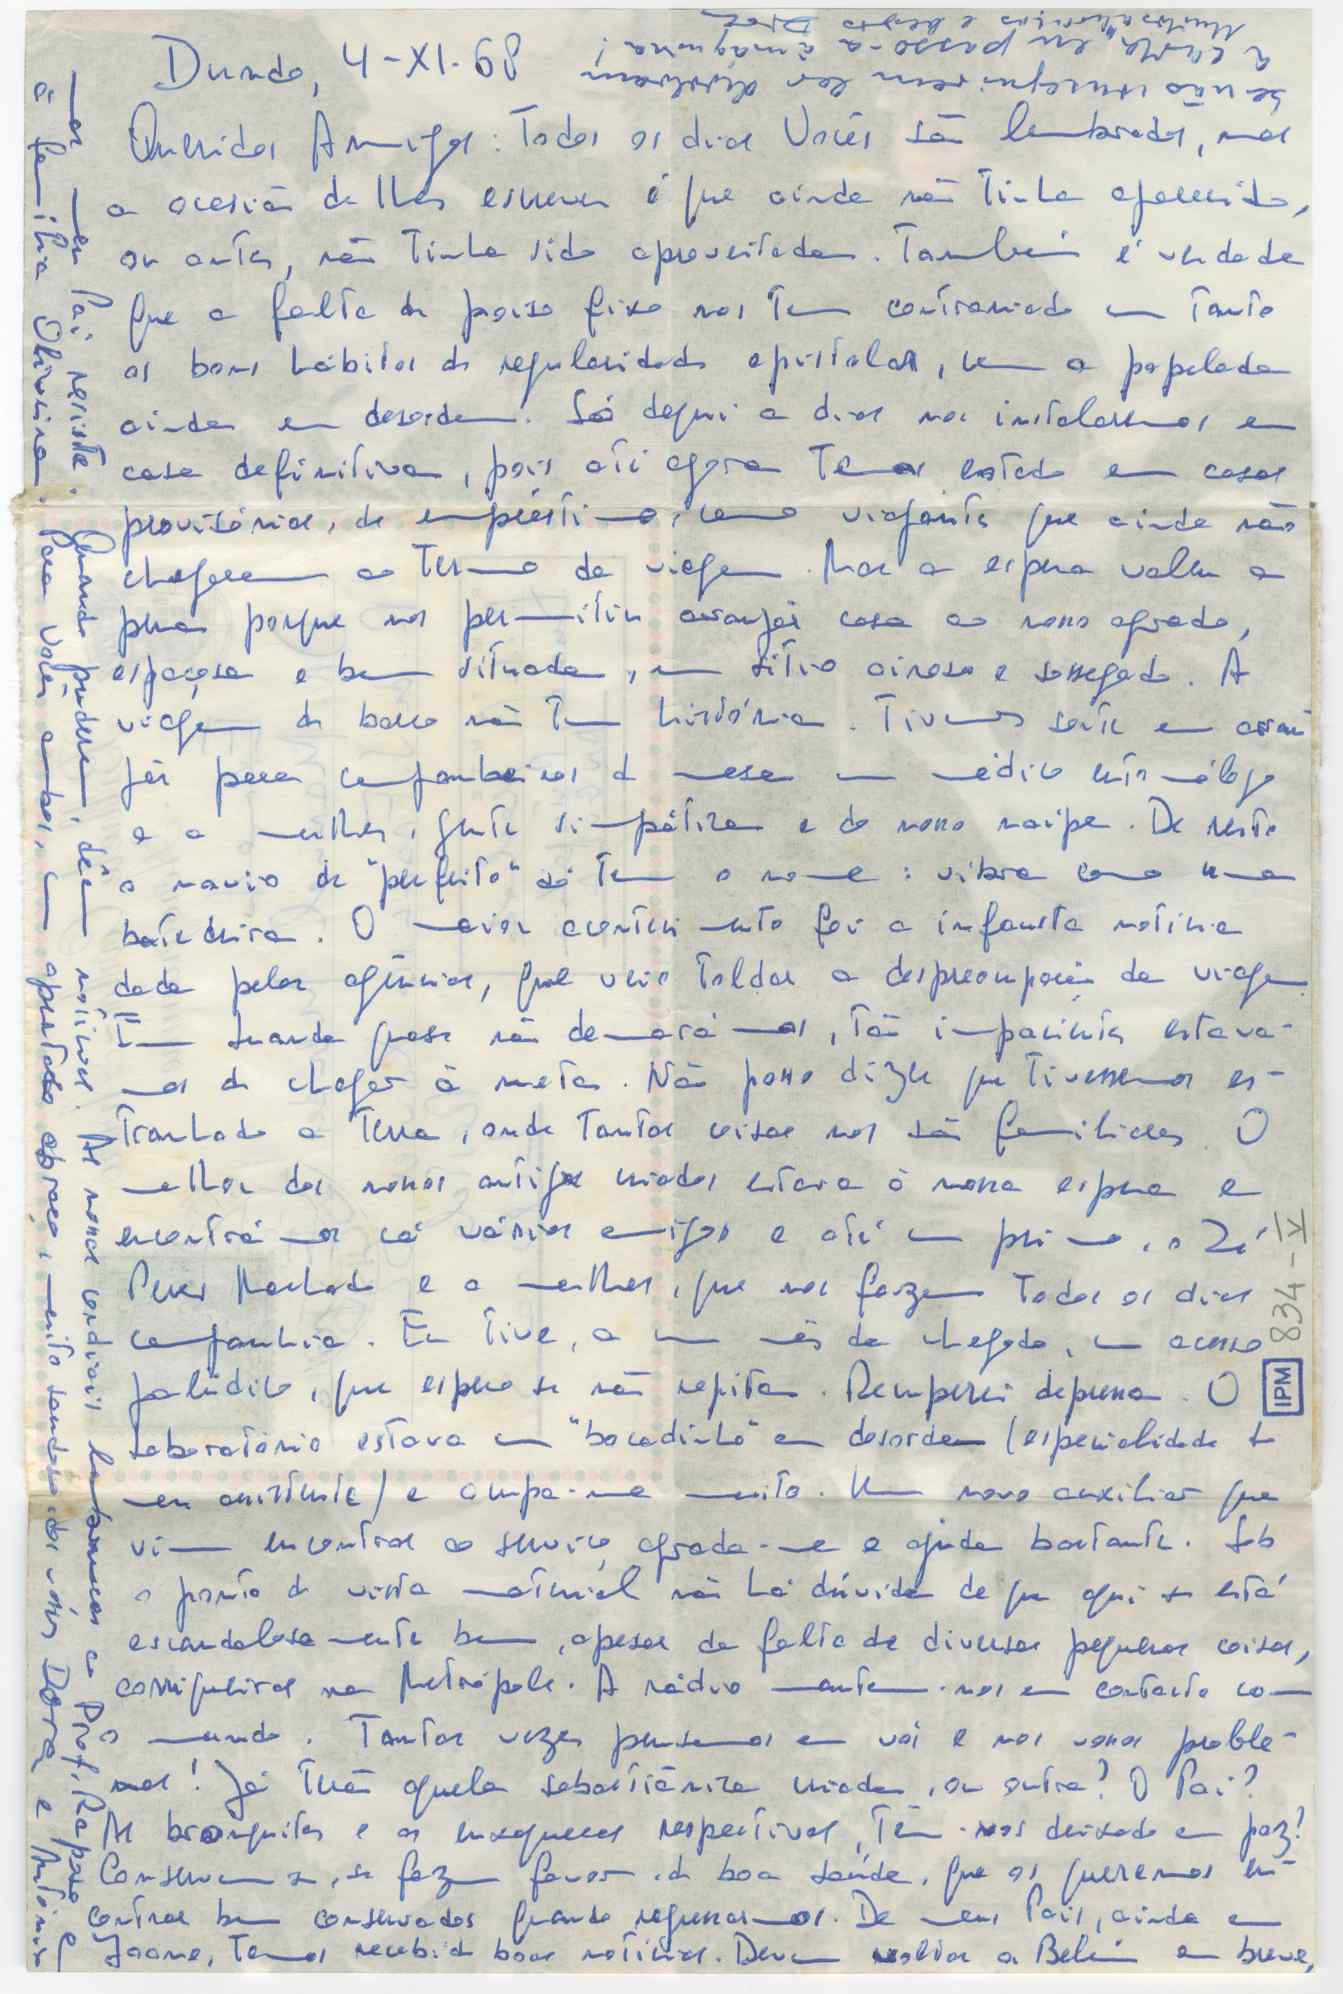 Dundo, 4-XI-68
Queridos Amigos: Todos os dias Vocês são lembrados, mas
a ocasião de lhes escrever é que ainda não tinha aparecido,
ou antes, não tinha sido aproveitada. Também é verdade
que a falta de pouso fixo nos tem contrariado um tanto
os bons hábitos de regularidade epistolar, com a papelada
ainda em desordem. Só daqui a dias nos instalaremos em
casa definitiva, pois até agora temos estado em casas
provisórias, de empréstimo, como viajantes que ainda não
chegaram ao termo da viagem. Mas a espera valeu a
pena porque nos permitiu arranjar casa ao nosso agrado,
espaçosa e bem situada, em sítio airoso e sossegado. A
viagem de barco não tem história. Tivemos sorte em arran
jar para companheiros de mesa um médico entomólogo
e a mulher, gente simpática e do nosso naipe. De resto
o navio de "perfeito" só tem o nome: vibra como uma
batedeira. O maior acontecimento foi a infausta notícia
dada pelas agências, que veio toldar a despreocupação da viagem.
Em Luanda quase não demorámos, tão impacientes estáva-
mos de chegar à meta. Não posso dizer que tivessemos es-
tranhado a terra, onde tantas coisas nos são familiares. O
melhor dos nossos antigos criados estava à nossa espera e
encontrámos cá vários amigos e até um primo, o Zé
Peres Machado e a mulher, que nos fazem todos os dias
companhia. Eu tive, a um mês da chegada, um acesso
palúdico, que espero se não repita. Recuperei depressa. O
Laboratório estava um "bocadinho" em desordem (especialidade do
meu assistente) e ocupa-me muito. Um novo auxiliar que
vim encontrar ao serviço agrada-me e ajuda bastante. Sob
o ponto de vista material não há dúvida de que aqui se está
escandalosamente bem, apesar da falta de diversas pequenas coisas,
corriqueiras na Metrópole. A rádio mantem-nos em contacto com
o mundo. Tantas vezes pensamos em vós e nos vossos proble-
mas! Já terão aquela sebastiânica criada, ou outra? O Pai?
As bronquites e as enxaquecas respectivas, têm-nos deixado em paz?
Conservem-se, se fazem favor, de boa saúde, que os queremos en-
contrar bem conservados quando regressarmos. De meus Pais, ainda em
Joane, temos recebido boas notícias. Devem voltar a Belém em breve,
se meu Pai resistir. Quando puderem, dêem notícias. As nossas cordiais lembranças ao Prof. Raposo e
à família Oliveira. Para Vocês ambos, um apertado abraço, muito saudoso, dos vossos Dora e António
Se não conseguirem ler devolvam
a carta, eu passo-a à máquina!
Muitas saudades e beijos
IPM
834-IV